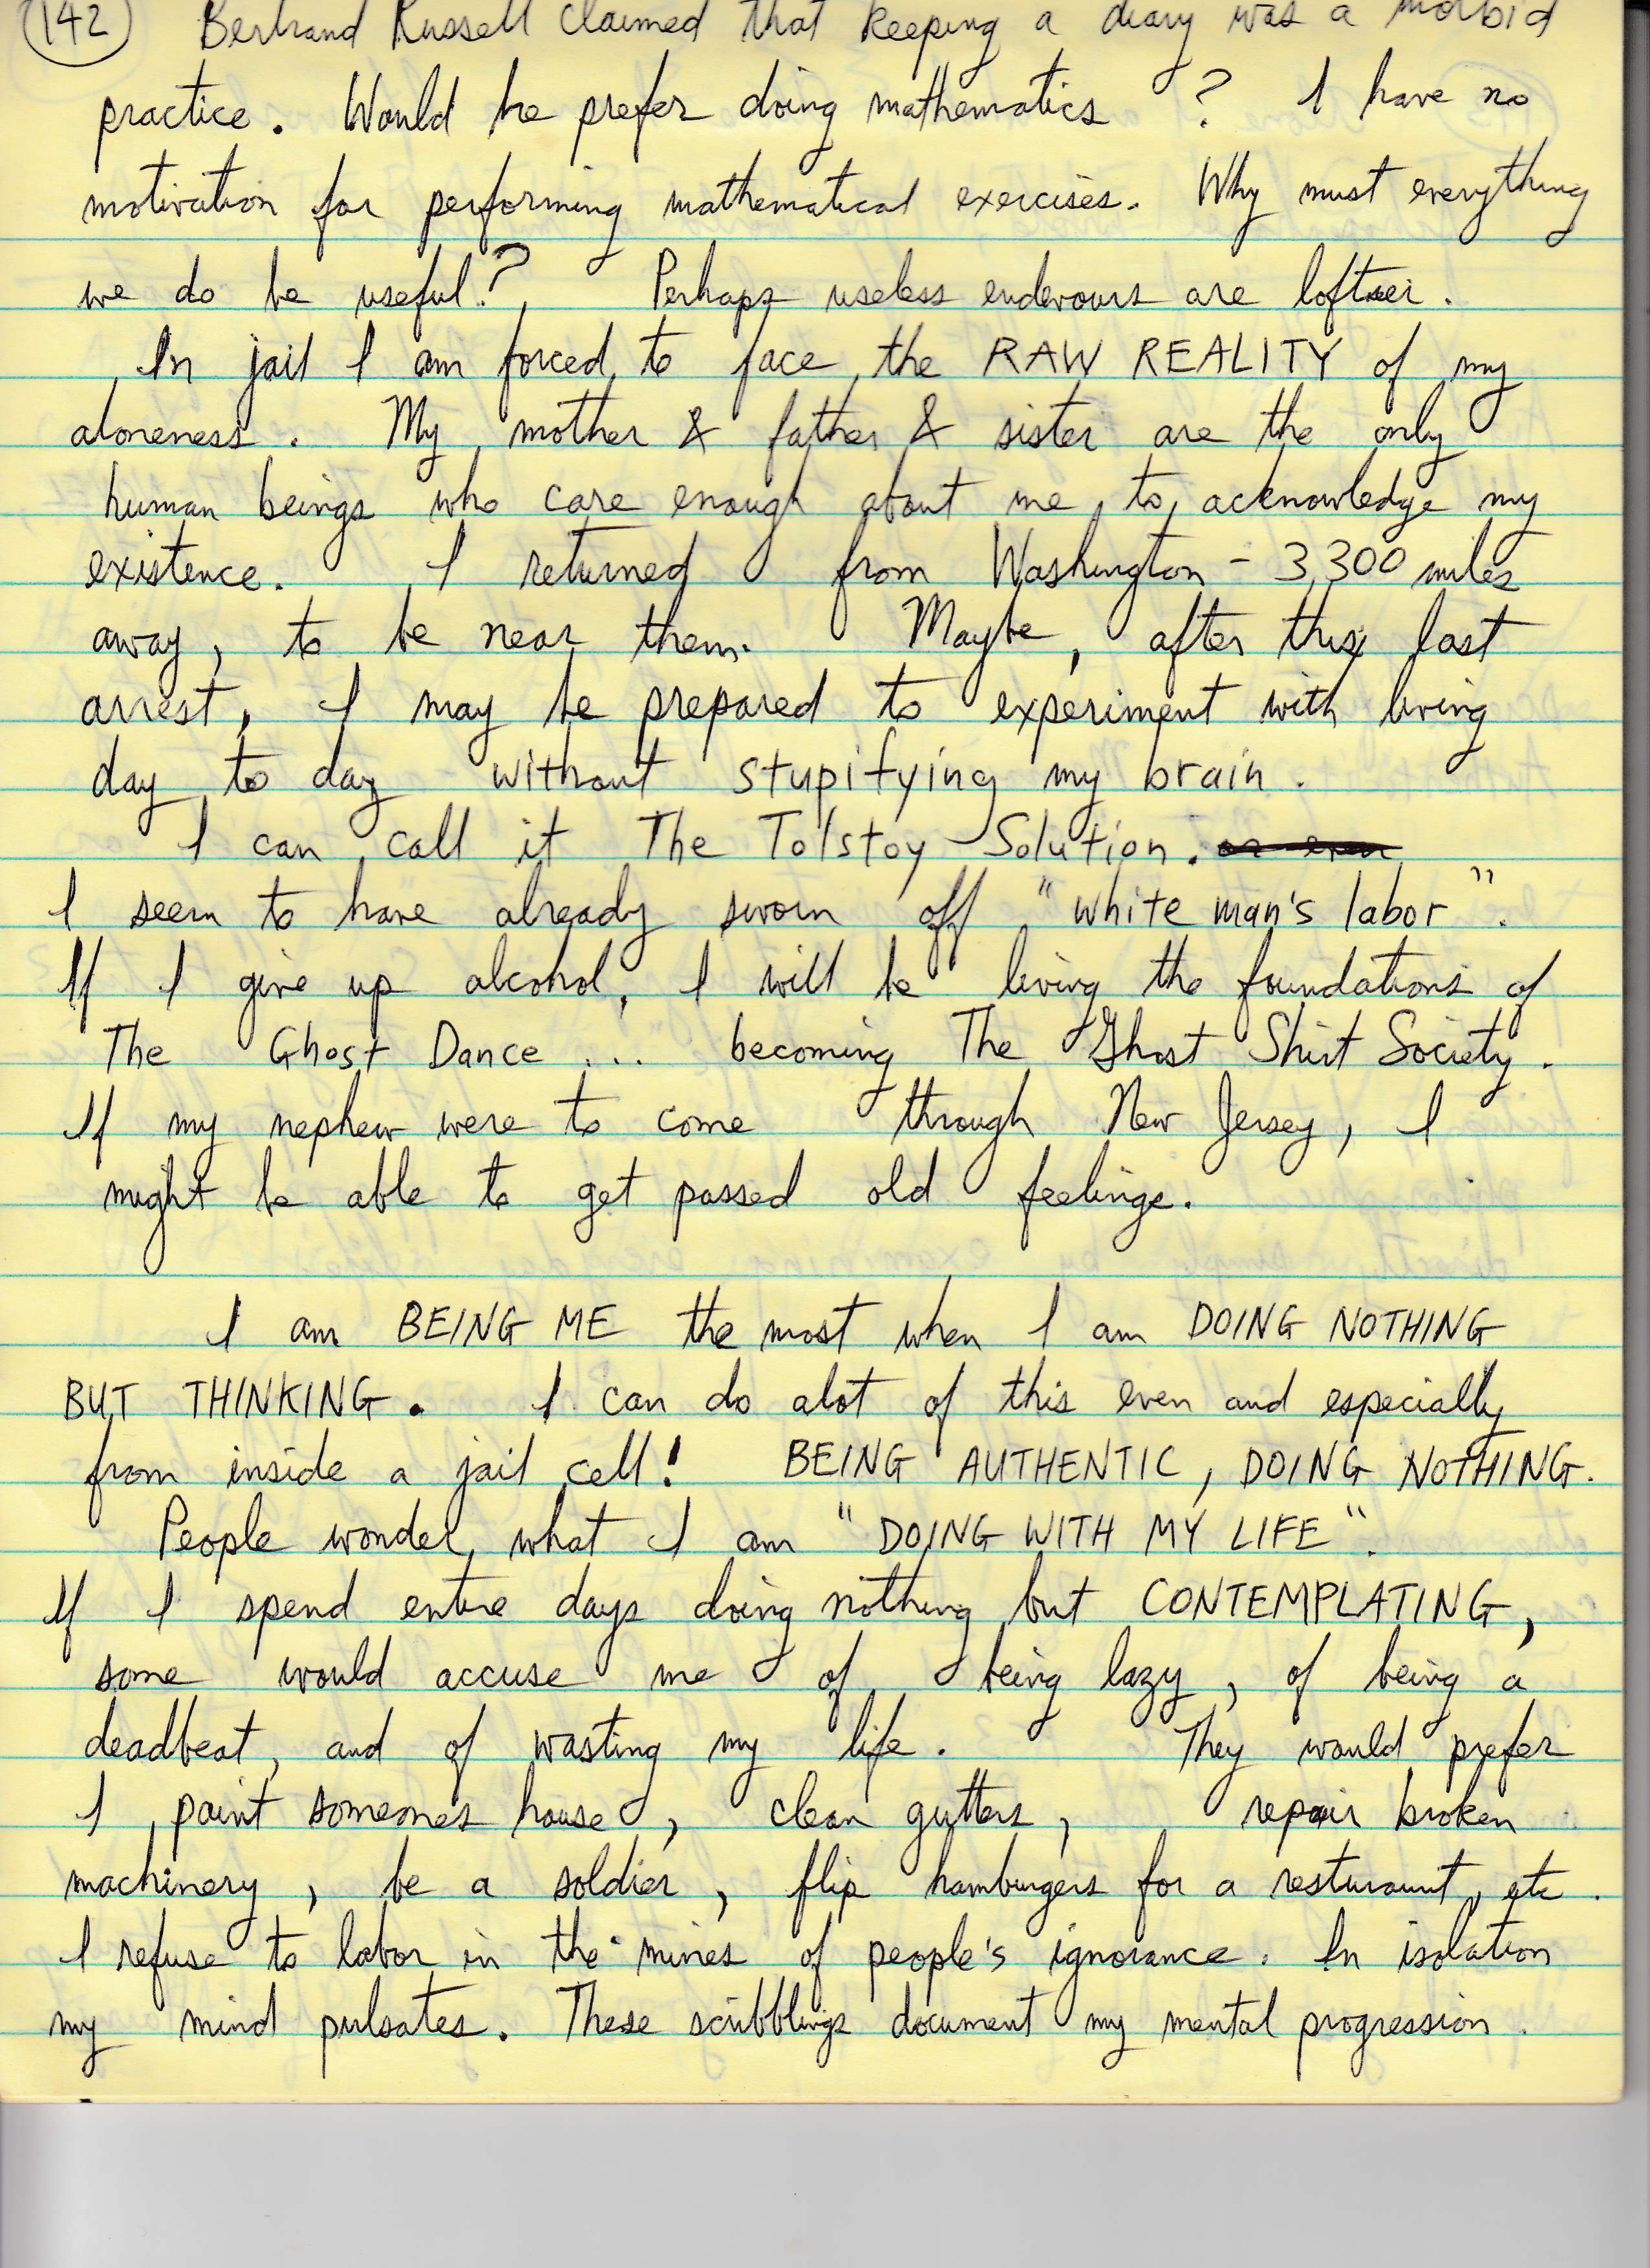 142 Bertrand Russell claimed that keeping a diary was a morbid
practice. Would he prefer doing mathematics ? I have no
motivation for performing mathematical exercises. Why must everything
we do be useful? Perhaps useless endevours are loftier.
In jail I am forced to face the RAW REALITY of my
aloneness. My mother & father & sister are the only
human beings who care enough about me to acknowledge my
existence. I returned from Washington - 3,300 miles
away, to be near them. Maybe, after this last
arrest, I may be prepared to experiment with living
day to day without stupifying my brain.
I can call it The Tolstoy Solution. or even
I seem to have already sworn off "white man's labor".
If I give up alcohol, I will be living the foundations of
The Ghost Dance ... becoming The Ghost Shirt Society.
If my nephew were to come through New Jersey, I
might be able to get passed old feelings.
I am BEING ME the most when I am DOING NOTHING
BUT THINKING. I can do alot of this even and especially
from inside a jail cell! BEING AUTHENTIC, DOING NOTHING.
People wonder what I am "DOING WITH MY LIFE".
If I spend entire days doing nothing but CONTEMPLATING,
some would accuse me of being lazy, of being a
deadbeat, and of wasting my life. They would prefer
I paint someones house, clean gutters, repair broken
machinery, be a soldier, flip hamburgers for a resturaunt, etc.
I refuse to labor in the mines of people's ignorance. In isolation
my mind pulsates. These scribblings document my mental progression.